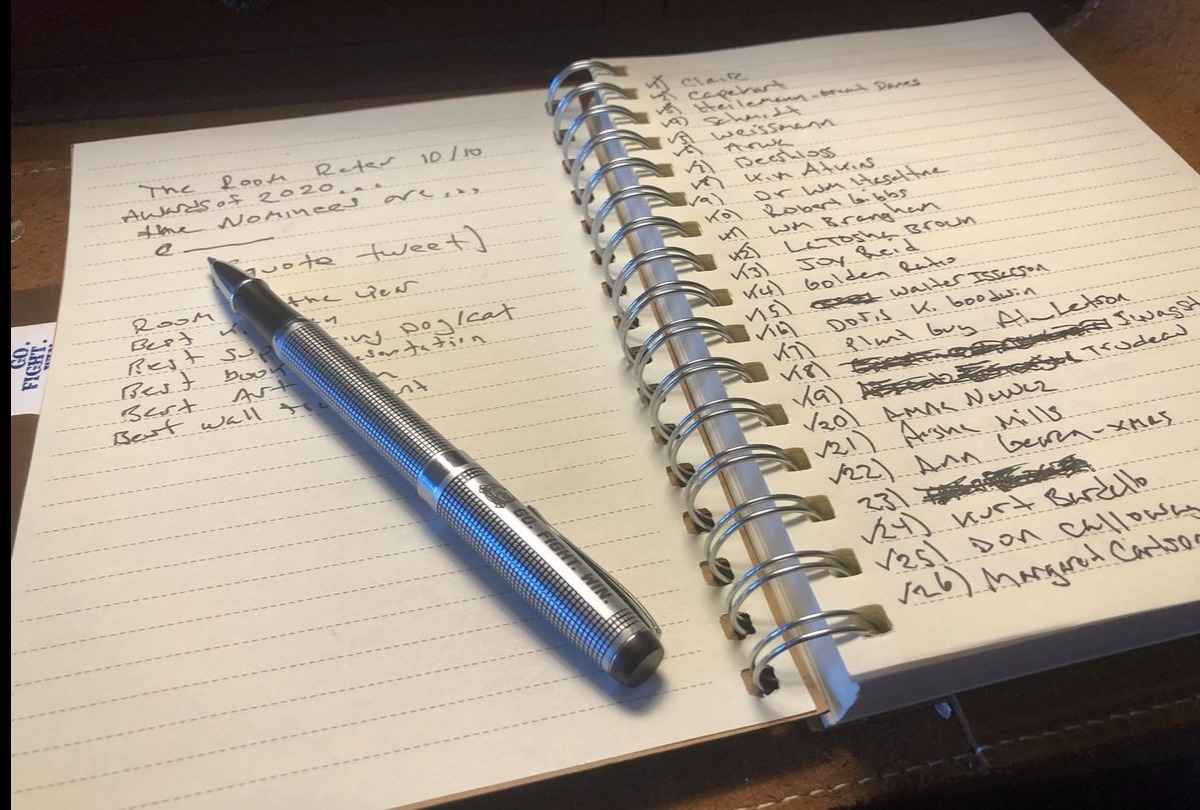 The Room Rater 10/10
Awards of 2020...
the Nominees are...
@
quote tweet)
Room the Year
Best
Best ing Dog/cat
Best book entation
Best Art
Best wall
GO.
FIGHT.
GO. FIGHT. WIN.
1) Claire
2) Capehart
3) Heilemann - Great Danes
4) Schmidt
5) Weissmann
6)
7) Deschloss
8) Kin Atkins
9) Dr Wm Haseltine
10) Robert Gibbs
11) Wm Brangham
12) LaTosha Brown
13) Joy Reid
14) Golden Ratio
15) Walter Isaacson
16) Doris K. Goodwin
17) Plant Guy Al Letson
18)
19) Trudeau
20) Amna Nawaz
21) Aisha Mills
22) Ann Gearan - xmas
23)
24) Kurt Bardella
25) Don Calloway
26) Margaret Carlson